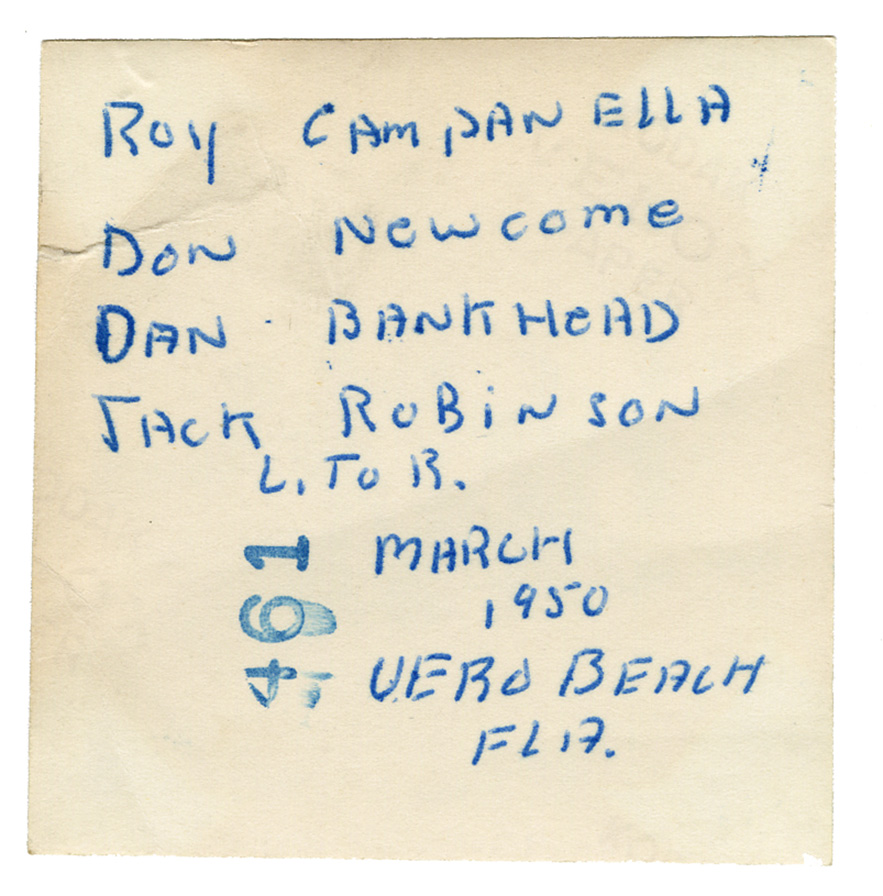 ROY CAMPANELLA
DON NEWCOME
DAN BANKHEAD
JACK ROBINSON
L. TO R.
MARCH
1950
VERO BEACH
FLA.
461